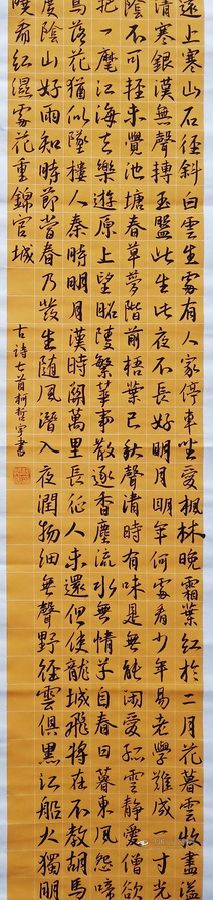 遠上寒山石徑斜白雲生處有人家停車坐愛楓林晚霜葉紅於二月花暮雲收盡溢
清寒銀漢無聲轉玉盤此生此夜不長好明月明年何處看少年易老學難成一寸光
陰不可輕未覺池塘春草夢階前梧葉已秋聲清時有味是無能閑愛孤雲靜愛僧欲
把一麾江海去樂遊原上望昭陵繁華事散逐香塵流水無情草自春日暮東風怨啼
鳥落花猶似墜樓人秦時明月漢時關萬里長征人未還但使龍城飛將在不教胡馬
度陰山好雨知時節當春乃發生隨風潛入夜潤物細無聲野徑雲俱黑江船火獨明
曉看紅濕處花重錦官城
古詩七首柯哲宇書